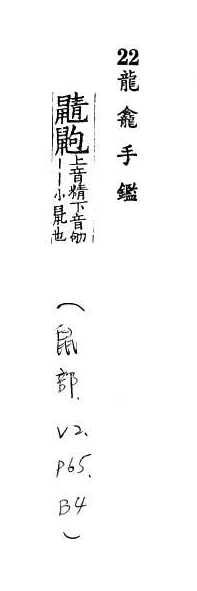 22龍龕手鑑
鼱鼩上音精下音劬
丨丨小鼠也
(鼠部、V2、P65、B4)